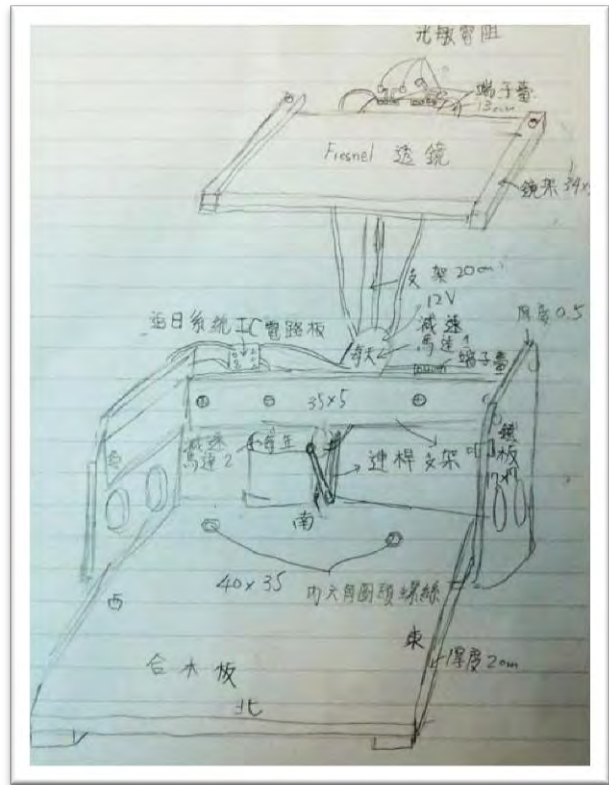 光敏電阻
端子臺
13cm
Fresnel 透鏡
鏡架 34x
支架20cm
12V
減速
馬達1
每天
追日系統IC電路板
端子臺
厚度0.5
35×5
減速
馬達2
每年
連桿支架
鐵板
南
40×35
內六角圓頭螺絲
西
東
合木板
厚度2cm
北